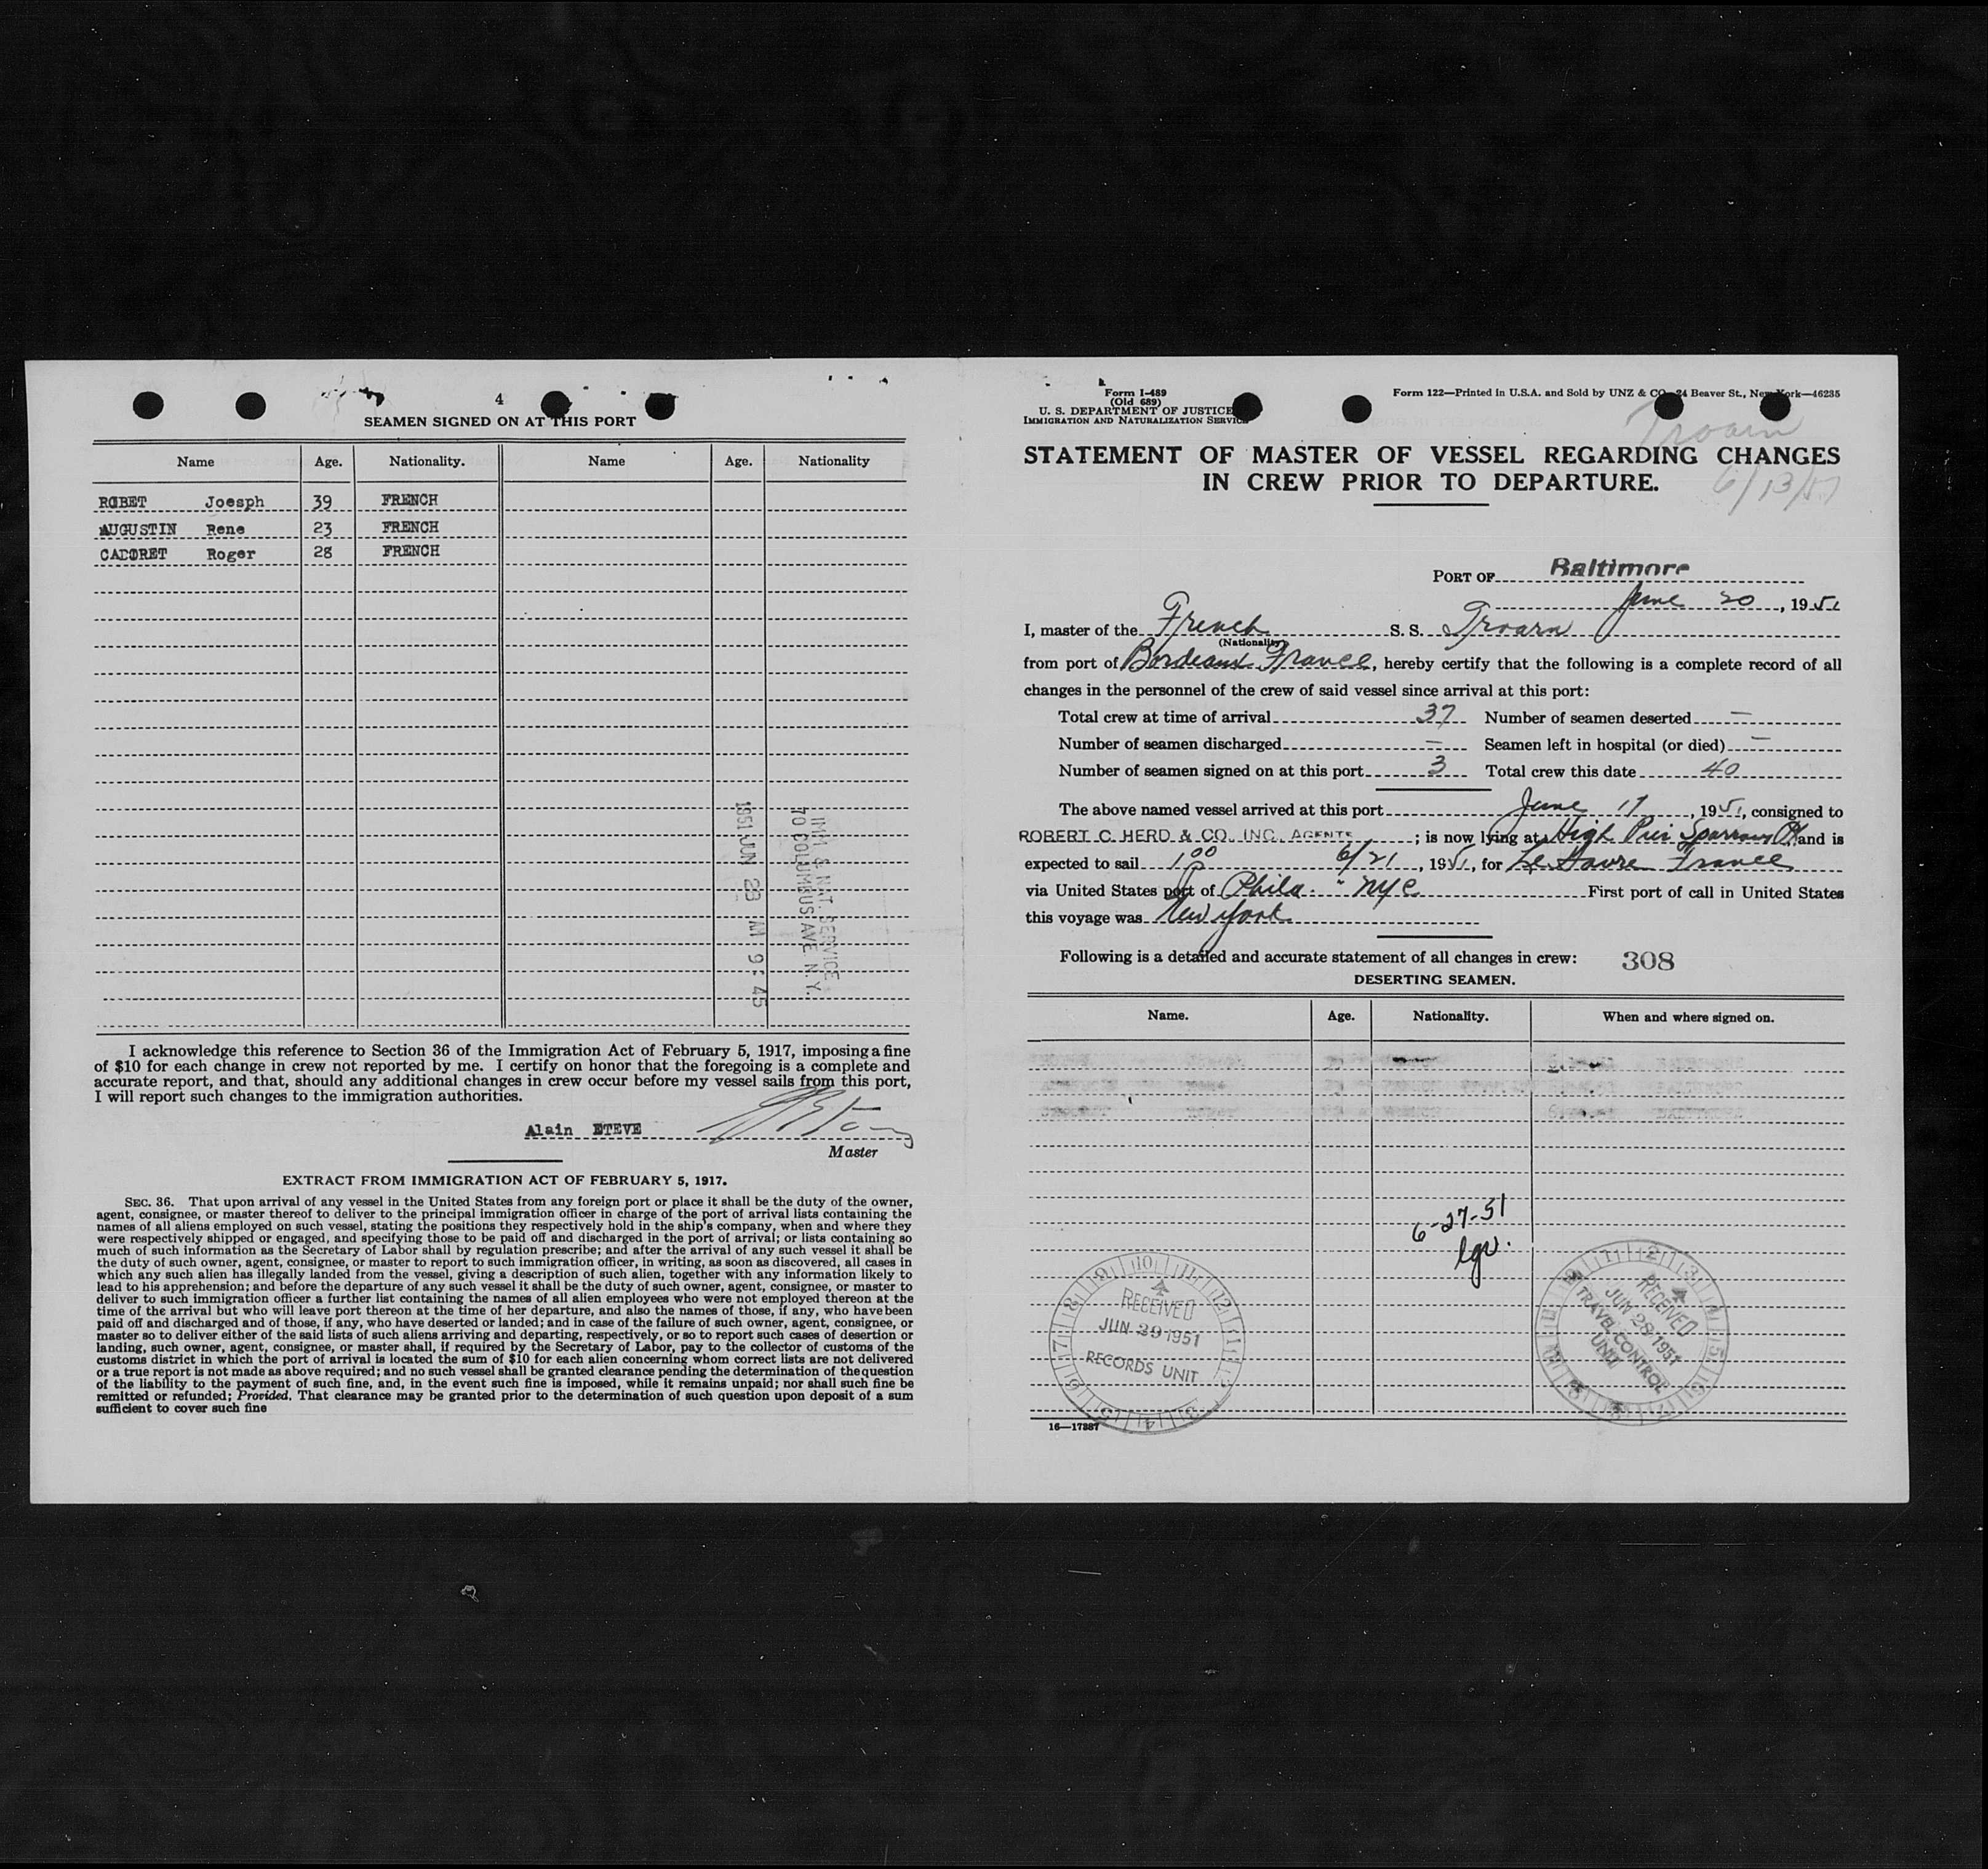 4
SEAMEN SIGNED ON AT THIS PORT
Name Age. Nationality. Name Age. Nationality
ROBET Joesph 39 FRENCH
AUGUSTIN Rene 23 FRENCH
CADORET Roger 28 FRENCH
IMM. & NAT. SERVICE
70 COLUMBUS AVE. N.Y.
1951 JUN 28 AM 9:45
I acknowledge this reference to Section 36 of the Immigration Act of February 5, 1917, imposing a fine
of $10 for each change in crew not reported by me. I certify on honor that the foregoing is a complete and
accurate report, and that, should any additional changes in crew occur before my vessel sails from this port,
I will report such changes to the immigration authorities.
Alain ETEVE
Master
EXTRACT FROM IMMIGRATION ACT OF FEBRUARY 5, 1917.
SEC. 36. That upon arrival of any vessel in the United States from any foreign port or place it shall be the duty of the owner,
agent, consignee, or master thereof to deliver to the principal immigration officer in charge of the port of arrival lists containing the
names of all aliens employed on such vessel, stating the positions they respectively hold in the ship's company, when and where they
were respectively shipped or engaged, and specifying those to be paid off and discharged in the port of arrival; or lists containing so
much of such information as the Secretary of Labor shall by regulation prescribe; and after the arrival of any such vessel it shall be
the duty of such owner, agent, consignee, or master to report to such immigration officer, in writing, as soon as discovered, all cases in
which any such alien has illegally landed from the vessel, giving a description of such alien, together with any information likely to
lead to his apprehension; and before the departure of any such vessel it shall be the duty of such owner, agent, consignee, or master to
deliver to such immigration officer a further list containing the names of all alien employees who were not employed thereon at the
time of the arrival but who will leave port thereon at the time of her departure, and also the names of those, if any, who have been
paid off and discharged and of those, if any, who have deserted or landed; and in case of the failure of such owner, agent, consignee, or
master so to deliver either of the said lists of such aliens arriving and departing, respectively, or so to report such cases of desertion or
landing, such owner, agent, consignee, or master shall, if required by the Secretary of Labor, pay to the collector of customs of the
customs district in which the port of arrival is located the sum of $10 for each alien concerning whom correct lists are not delivered
or a true report is not made as above required; and no such vessel shall be granted clearance pending the determination of the question
of the liability to the payment of such fine, and, in the event such fine is imposed, while it remains unpaid; nor shall such fine be
remitted or refunded; Provided, That clearance may be granted prior to the determination of such question upon deposit of a sum
sufficient to cover such fine
Form I-489
(Old 689)
U. S. DEPARTMENT OF JUSTICE
IMMIGRATION AND NATURALIZATION SERVICE
Form 122—Printed in U.S.A. and Sold by UNZ & CO. 24 Beaver St., New York—46235
Troarn
6/13/51
STATEMENT OF MASTER OF VESSEL REGARDING CHANGES
IN CREW PRIOR TO DEPARTURE.
PORT OF Baltimore
June 20, 1951
I, master of the French S. S. Troarn
(Nationality)
from port of Bordeaux France, hereby certify that the following is a complete record of all
changes in the personnel of the crew of said vessel since arrival at this port:
Total crew at time of arrival 37 Number of seamen deserted —
Number of seamen discharged — Seamen left in hospital (or died) —
Number of seamen signed on at this port 3 Total crew this date 40
The above named vessel arrived at this port June 17, 1951, consigned to
ROBERT C. HERD & CO. INC. AGENTS; is now lying at High Pier Sparrows Pt and is
expected to sail 1 00 6/21, 1951, for Le Havre France
via United States port of Phila. " NYC First port of call in United States
this voyage was New York
Following is a detailed and accurate statement of all changes in crew: 308
DESERTING SEAMEN.
Name. Age. Nationality. When and where signed on.
6-27-51
lgv.
RECEIVED
JUN 29 1951
RECORDS UNIT
RECEIVED
JUN 28 1951
TRAVEL CONTROL
UNIT
16—17887